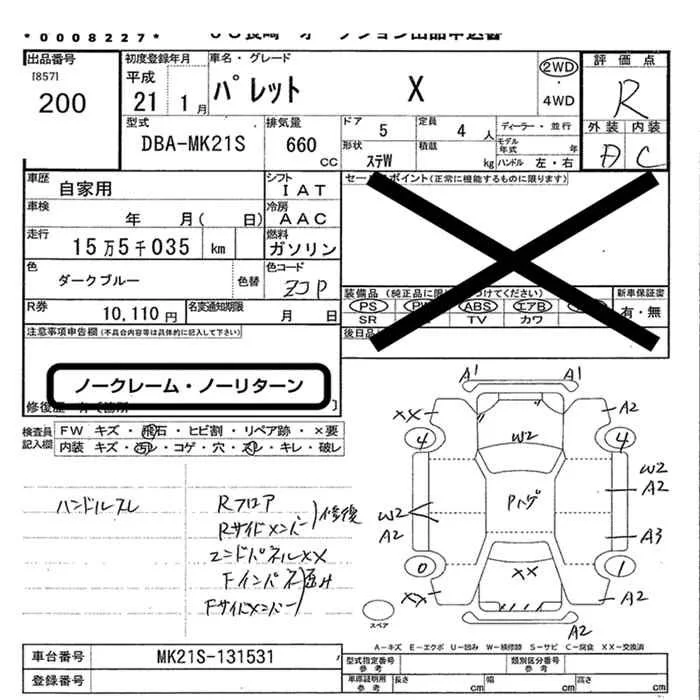 *0008227*
出品番号 初度登録年月 車名・グレード 2WD 評価点
[857] 平成 パレット X ・ R
200 21 1月 4WD 外装 内装
型式 排気量 ドア 定員 ディーラー・並行 D C
DBA-MK21S 660 CC 5 4 人 モデル年式 年
形状 積載 ハンドル 左・右
ステW kg
車歴 シフト セールスポイント(正常に機能するものに限ります)
自家用 IAT
車検 冷房
年 月( 日) AAC
走行 燃料
15万5千035 km ガソリン
色 色コード
ダークブルー 色替 ZJP 装備品 新車保証書
R券 名変通知期限 PS PW ABS エアB 有・無
10,110円 月 日 SR TV カワ
注意事項申告欄(不具合内容等は具体的に記入して下さい) 後日品
ノークレーム・ノーリターン
修復歴
検査員 FW キズ・飛石・ヒビ割・リペア跡・×要
記入欄 内装 キズ・汚レ・コゲ・穴・スレ・キレ・破レ
ハンドルスレ
Rフロア
Rサイドメンバー 修復
エンドパネルXX
Fインパネ
Fサイドメンバー
A1 A1
XX A2
4 W2 4
W2
A2
Pハゲ
W2
A2 A3
0 XX 1
XX A2
スペア A2
A-キズ E-エクボ U-凹み W-補修跡 S-サビ C-腐食 XX-交換済
車台番号 MK21S-131531 型式指定番号 参考 類別区分番号 参考
登録番号 車庫証明用 参考 長さ cm 幅 cm 高さ cm